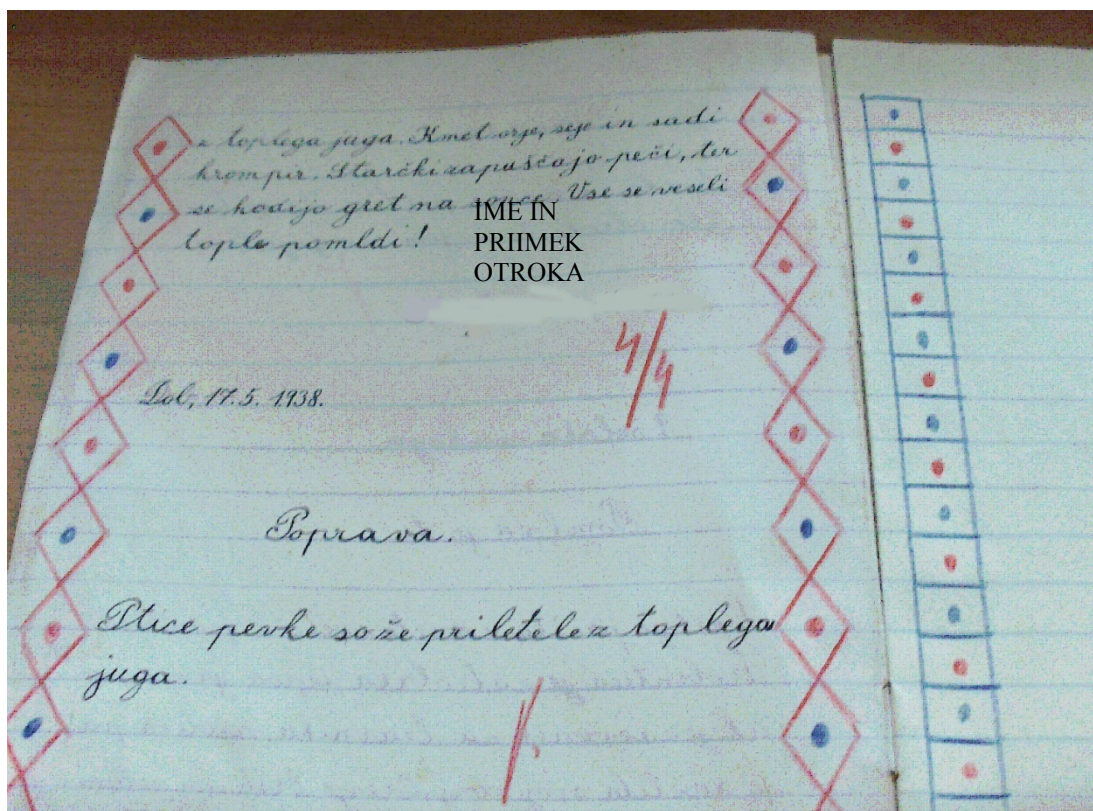 z toplega juga. Kmet orje, seje in sadi
krompir. Starčki zapuščajo peči, ter
se hodijo gret na sonce. Vse se veseli
tople pomldi!
IME IN
PRIIMEK
OTROKA
4/4
Dob, 17.5. 1938.
Poprava.
Ptice pevke so že priletele z toplega
juga.